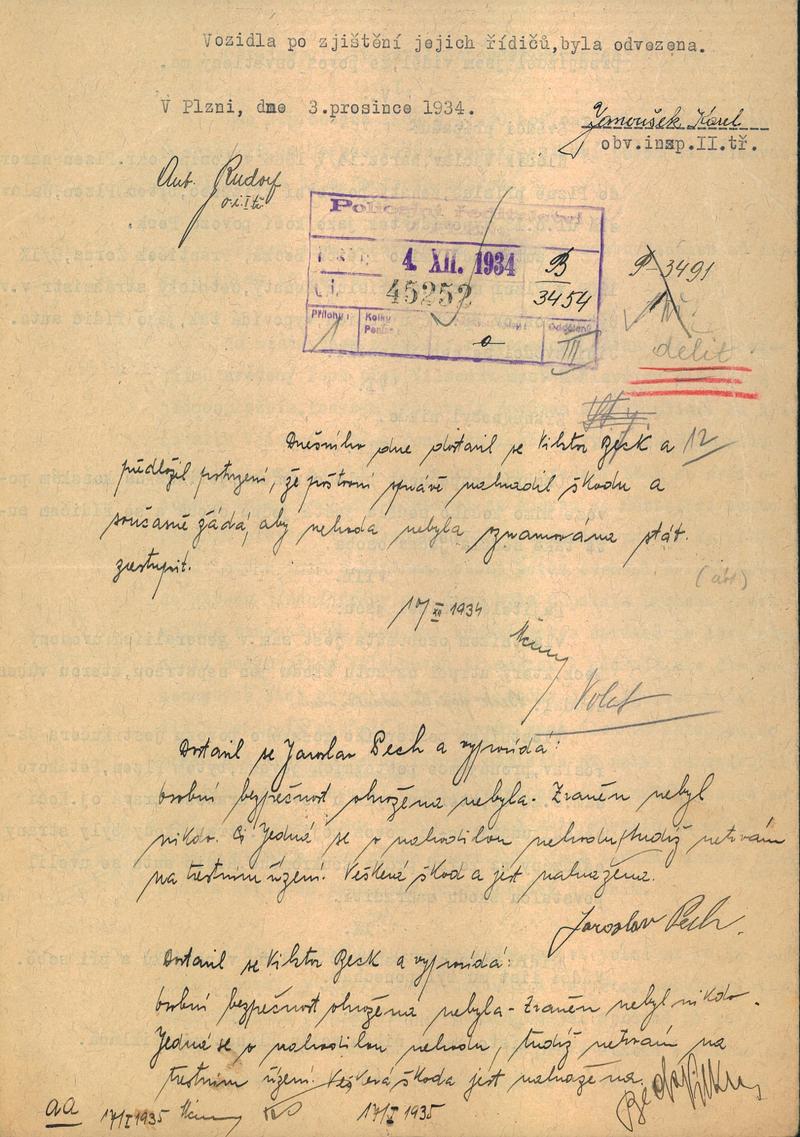 Vozidla po zjištění jejich řídičů,byla odvezena.
V Plzni, dne 3.prosince 1934.
Janoušek Karel
obv.insp.II.tř.
Ant. Rudorf
o.i.I tř.
Policejní ředitelství
4. XII. 1934
B
3454
Č. j. 45252
Přílohy: 1
Kolky
Oddělení III
9-3491
delit
Dnešního dne dostavil se Viktor Beck a 12
předložil potvrzení, že poštovní správě nahradil škodu a
současně žádá, aby nehoda nebyla oznamována stát.
zastupit.
10/XII 1934
Dostavil se Jaroslav Pech a vypovídá:
osobní bezpečnost ohrožena nebyla. Zraněn nebyl
nikdo. Jedná se o nahodilou nehodu, tudíž netrvám
na trestním řízení. Veškerá škoda jest nahražena.
Jaroslav Pech.
Dostavil se Viktor Beck a vypovídá:
osobní bezpečnost ohrožena nebyla - Zraněn nebyl nikdo.
Jedná se o nahodilou nehodu, tudíž netrvám na
trestním řízení. Veškerá škoda jest nahražena.
Beck Viktor
aa 17/I 1935 17/I 1935